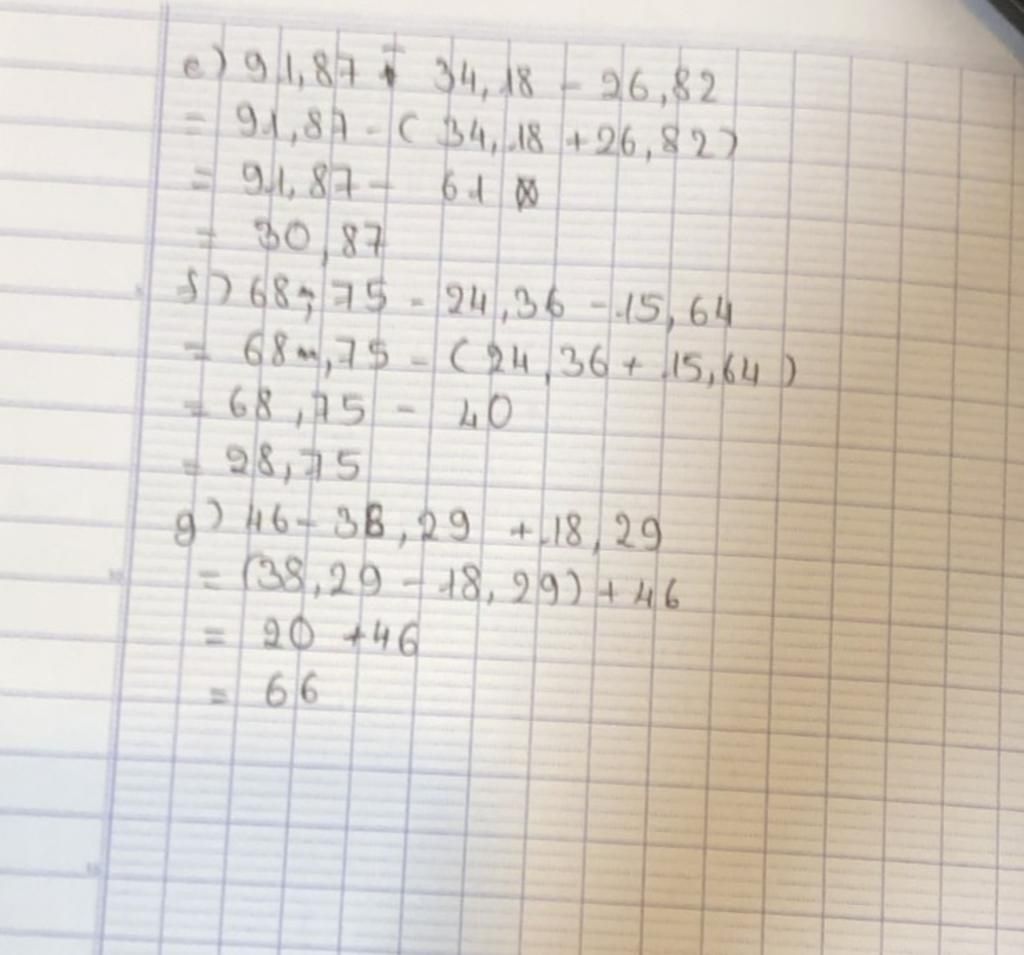 e) 91,87 - 34,18 - 26,82
= 91,87 - (34,18 + 26,82)
= 91,87 - 61
= 30,87
f) 68,75 - 24,36 - 15,64
= 68,75 - (24,36 + 15,64)
= 68,75 - 40
= 28,75
g) 46 - 38,29 + 18,29
= (38,29 - 18,29) + 46
= 20 + 46
= 66